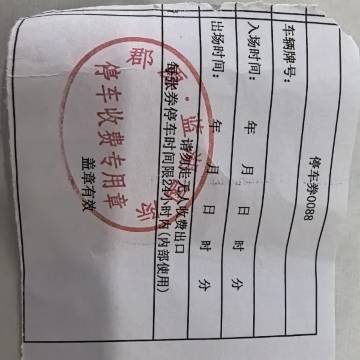 停车券0088
车辆牌号:
入场时间: 年 月 日 时 分
出场时间: 年 月 日 时 分
请勿走无人收费出口
每张券停车时间限24小时内(内部使用)
盖章有效
停车收费专用章